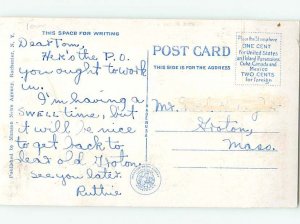 THIS SPACE FOR WRITING
Dear Tom,
Here's the P.O.
you ought to work
in.
I'm having a
SWELL time, but
it will be nice
to get back to
dear old Groton.
See you later.
Ruthie
POST CARD
THIS SIDE IS FOR THE ADDRESS
Place the Stamp here
ONE CENT
for United States
and Island Possessions
Cuba, Canada and
Mexico
TWO CENTS
FOR FOREIGN
Mr.
Groton,
Mass.
Published by Manson News Agency, Rochester, N. Y.